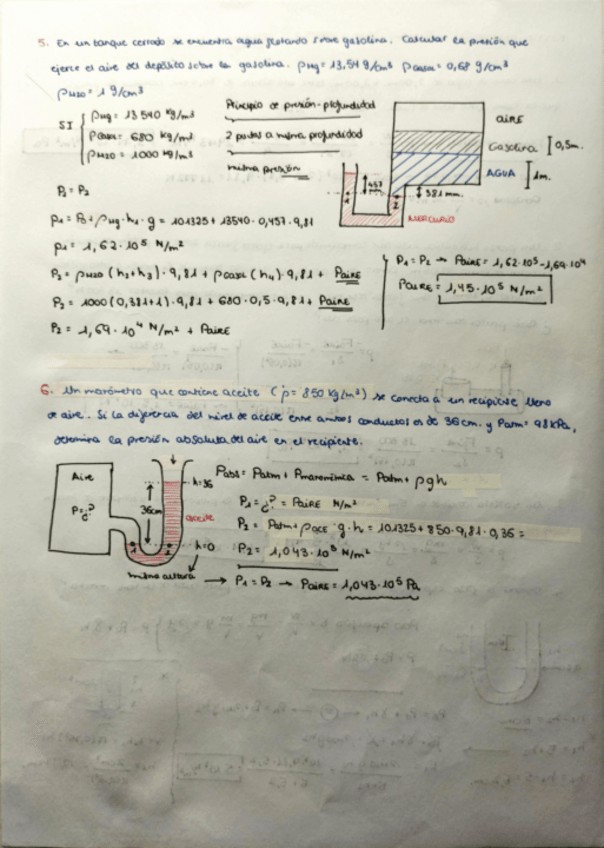 5. En un tanque cerrado se encuentra agua flotando sobre gasolina. Calcular la presión que
ejerce el aire del depósito sobre la gasolina. ρHg = 13,54 g/cm³ ρgasol = 0,68 g/cm³
ρH2O = 1 g/cm³
SI { ρHg = 13 540 kg/m³
ρgasol = 680 kg/m³
ρH2O = 1000 kg/m³
Principio de presión-profundidad
2 puntos a misma profundidad
misma presión
AIRE
Gasolina
0,5m.
AGUA
1m.
457
381 mm.
1
2
MERCURIO
P₁ = P₂
P₁ = P₀ + ρHg · h₁ · g = 101325 + 13540 · 0,457 · 9,81
P₁ = 1,62 · 10⁵ N/m²
P₂ = ρH2O (h₂+h₃) · 9,81 + ρgasol (h₄) · 9,81 + PAIRE
P₂ = 1000 (0,381+1) · 9,81 + 680 · 0,5 · 9,81 + PAIRE
P₂ = 1,69 · 10⁴ N/m² + PAIRE
P₁ = P₂ → PAIRE = 1,62·10⁵ - 1,69·10⁴
PAIRE = 1,45 · 10⁵ N/m²
6. Un manómetro que contiene aceite (ρ = 850 kg/m³) se conecta a un recipiente lleno
de aire. Si la diferencia del nivel de aceite entre ambos conductos es de 36 cm. y Patm = 98 kPa,
determina la presión absoluta del aire en el recipiente.
Aire
P = ¿?
36cm
h=36
aceite
h=0
1
2
misma altura
Pabs = Patm + Pmanométrica = Patm + ρgh
P₁ = ¿? = PAIRE N/m²
P₂ = Patm + ρACE · g · h = 101325 + 850 · 9,81 · 0,36 =
P₂ = 1,043 · 10⁵ N/m²
→ P₁ = P₂ → PAIRE = 1,043 · 10⁵ Pa